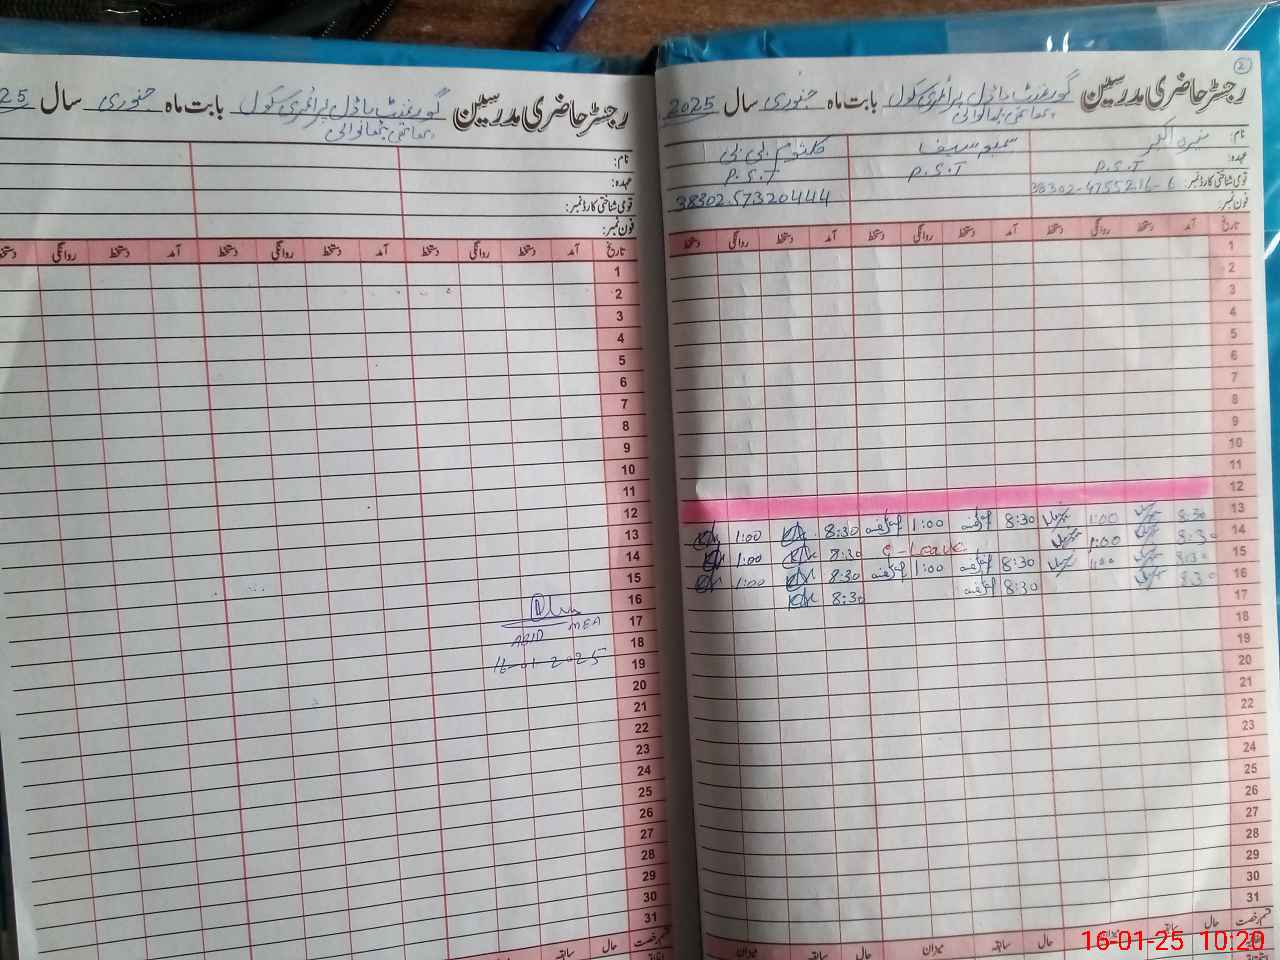 رجسٹر حاضری مدرسین گورنمنٹ ماڈل پرائمری سکول بابت ماہ جنوری سال 2025
نام:
کلثوم بی بی
عہدہ: P.S.T P.S.T P.S.T
قومی شناختی کارڈ نمبر: 38302-4755216-6 38302.57320444
فون نمبر:
تاریخ آمد دستخط روانگی دستخط آمد دستخط روانگی دستخط آمد دستخط روانگی دستخط
1
2
3
4
5
6
7
8
9
10
11
12
13 8:30 1:00 8:30 1:00 8:30 1:00
14 8:30 1:00 C-Leave 8:30 1:00
15 8:30 1:00 8:30 1:00 8:30 1:00
16 8:30 8:30 8:30
17
18
19
20
21
22
23
24
25
26
27
28
29
30
31
قسم رخصت حال سابقہ میزان حال سابقہ میزان حال سابقہ میزان
رجسٹر حاضری مدرسین گورنمنٹ ماڈل پرائمری سکول بابت ماہ جنوری سال 25
نام:
عہدہ:
قومی شناختی کارڈ نمبر:
فون نمبر:
تاریخ آمد دستخط روانگی دستخط آمد دستخط روانگی دستخط آمد دستخط روانگی دستخط
1
2
3
4
5
6
7
8
9
10
11
12
13
14
15
16
17
ABID MEA
18
16-01-2025
19
20
21
22
23
24
25
26
27
28
29
30
31
قسم رخصت حال سابقہ میزان
16-01-25 10:20